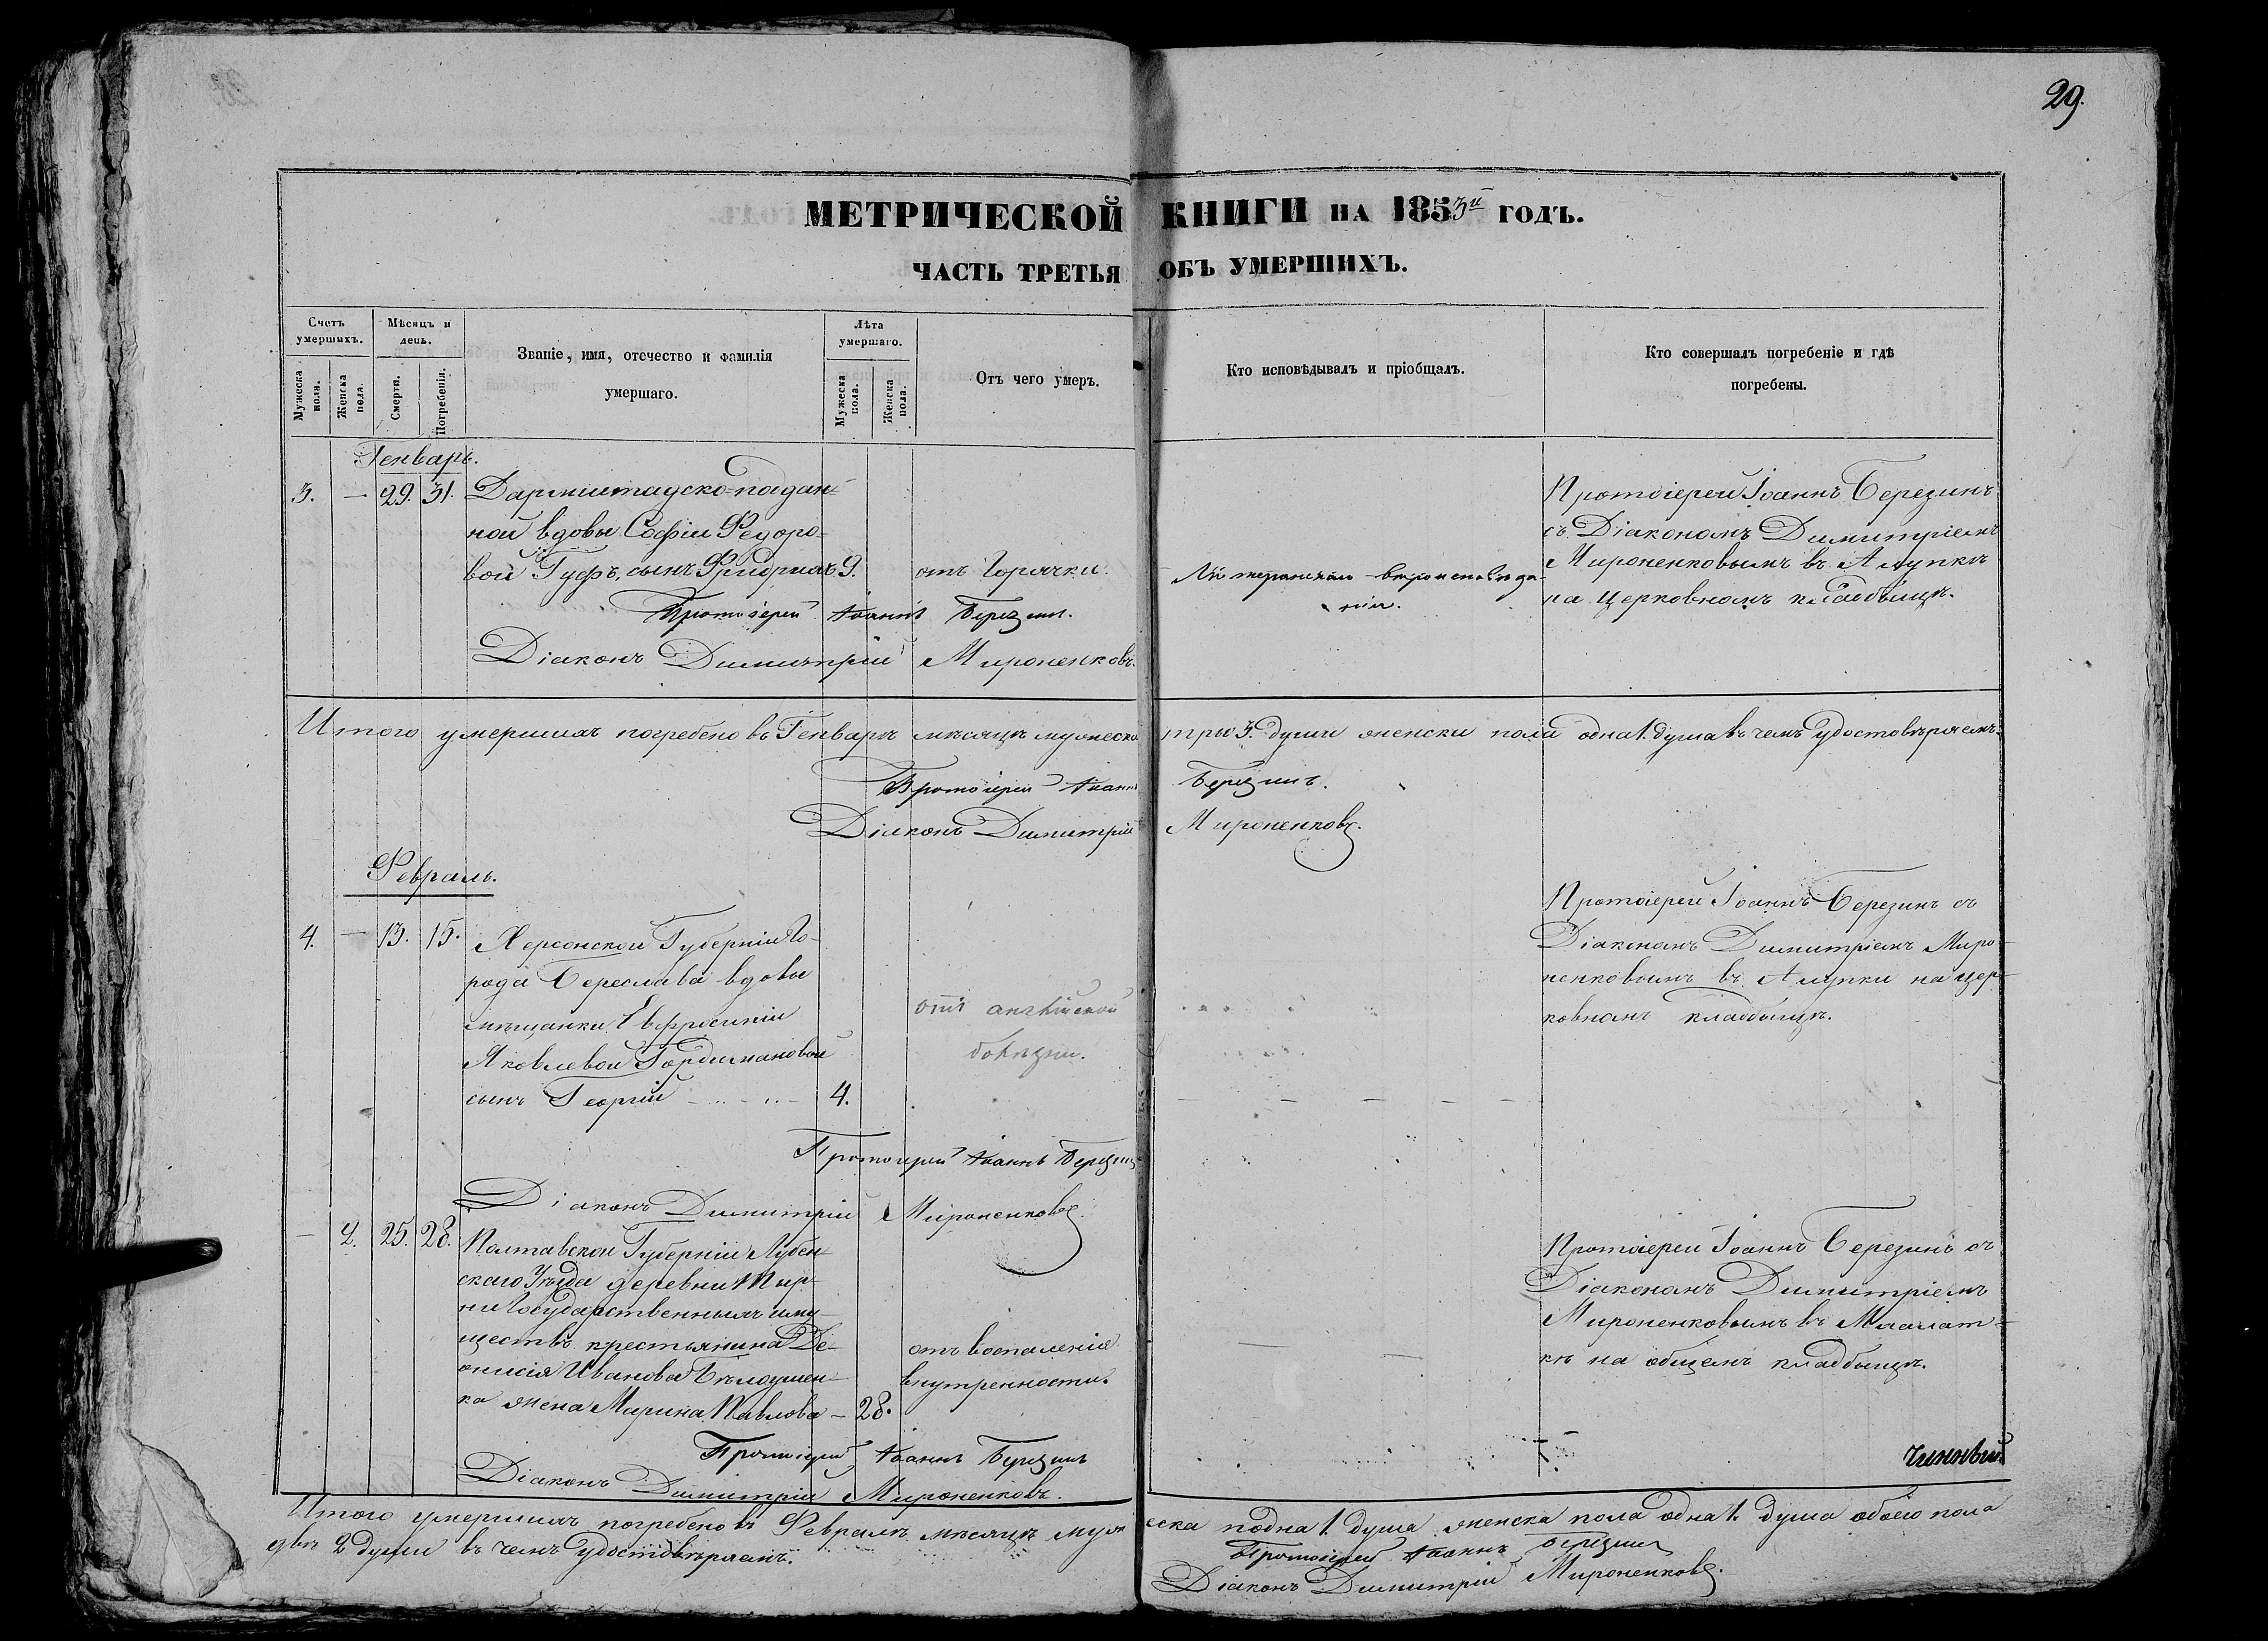 29.
МЕТРИЧЕСКОЙ КНИГИ НА 1853й ГОДЪ.
ЧАСТЬ ТРЕТЬЯ ОБЪ УМЕРШИХЪ.
Счетъ умершихъ.
Мужеска пола.
Женска пола.
Мѣсяцъ и день.
Смерти.
Погребенія.
Званіе, имя, отечество и фамилія
умершаго.
Лѣта умершаго.
Мужеска пола.
Женска пола.
Отъ чего умеръ.
Кто исповѣдывалъ и пріобщалъ.
Кто совершалъ погребеніе и гдѣ
погребены.
Генварь.
3. — 29. 31. Дармштадско-поддан-
ной вдовы Софіи Федоро-
вой Гуфъ, сынъ Фридрихъ 9. отъ Горячки.
Лютеранскаго вѣроисповѣда-
нія.
Протоіерей Іоаннъ Березинъ
съ Діакономъ Димитріемъ
Мироненковымъ въ Алупкѣ
на церковномъ кладбищѣ.
Протоіерей Іоаннъ Березинъ.
Діаконъ Димитрій Мироненковъ.
Итого умершихъ погребено въ Генварѣ мѣсяцѣ мужеска три 3. души женска пола одна 1. душа въ чемъ удостовѣряемъ.
Протоіерей Іоаннъ Березинъ.
Діаконъ Димитрій Мироненковъ.
Февраль.
4. — 13. 15. Херсонской Губерніи Го-
рода Береслава вдовы
мѣщанки Евфросиніи
Яковлевой
сынъ Георгій 4.
отъ англійской
болѣзни.
Протоіерей Іоаннъ Березинъ съ
Діакономъ Димитріемъ Миро-
ненковымъ въ Алупки на цер-
ковномъ кладбищѣ.
Протоіерей Іоаннъ Березинъ
Діаконъ Димитрій Мироненковъ.
— 2. 25. 28. Полтавской Губерніи Лубен-
скаго Уѣзда деревни
Государственныхъ иму-
ществъ крестьянина Де-
онисія Иванова
ка жена Марина Павлова — 28.
отъ воспаленія
внутренности.
Протоіерей Іоаннъ Березинъ съ
Діакономъ Димитріемъ
Мироненковымъ въ Мшат-
кѣ на общемъ кладбищѣ.
Протоіерей Іоаннъ Березинъ
Діаконъ Димитрій Мироненковъ.
Итого умершихъ погребено въ Февралѣ мѣсяцѣ муж еска одна 1. душа женска пола одна 1. душа обоего пола
двѣ 2 души въ чемъ удостовѣряемъ.
Протоіерей Іоаннъ Березинъ
Діаконъ Димитрій Мироненковъ.